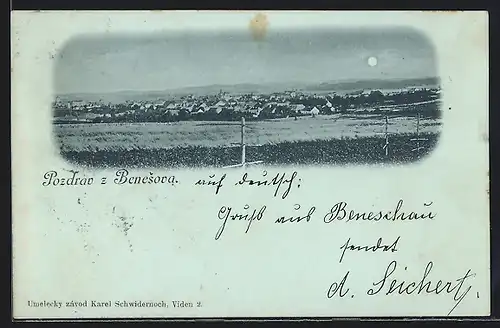 Pozdrav z Benešova. auf deutsch:
Gruß aus Beneschau
sendet
d. Seichert
Umelecky závod Karel Schwidernoch, Viden 2.